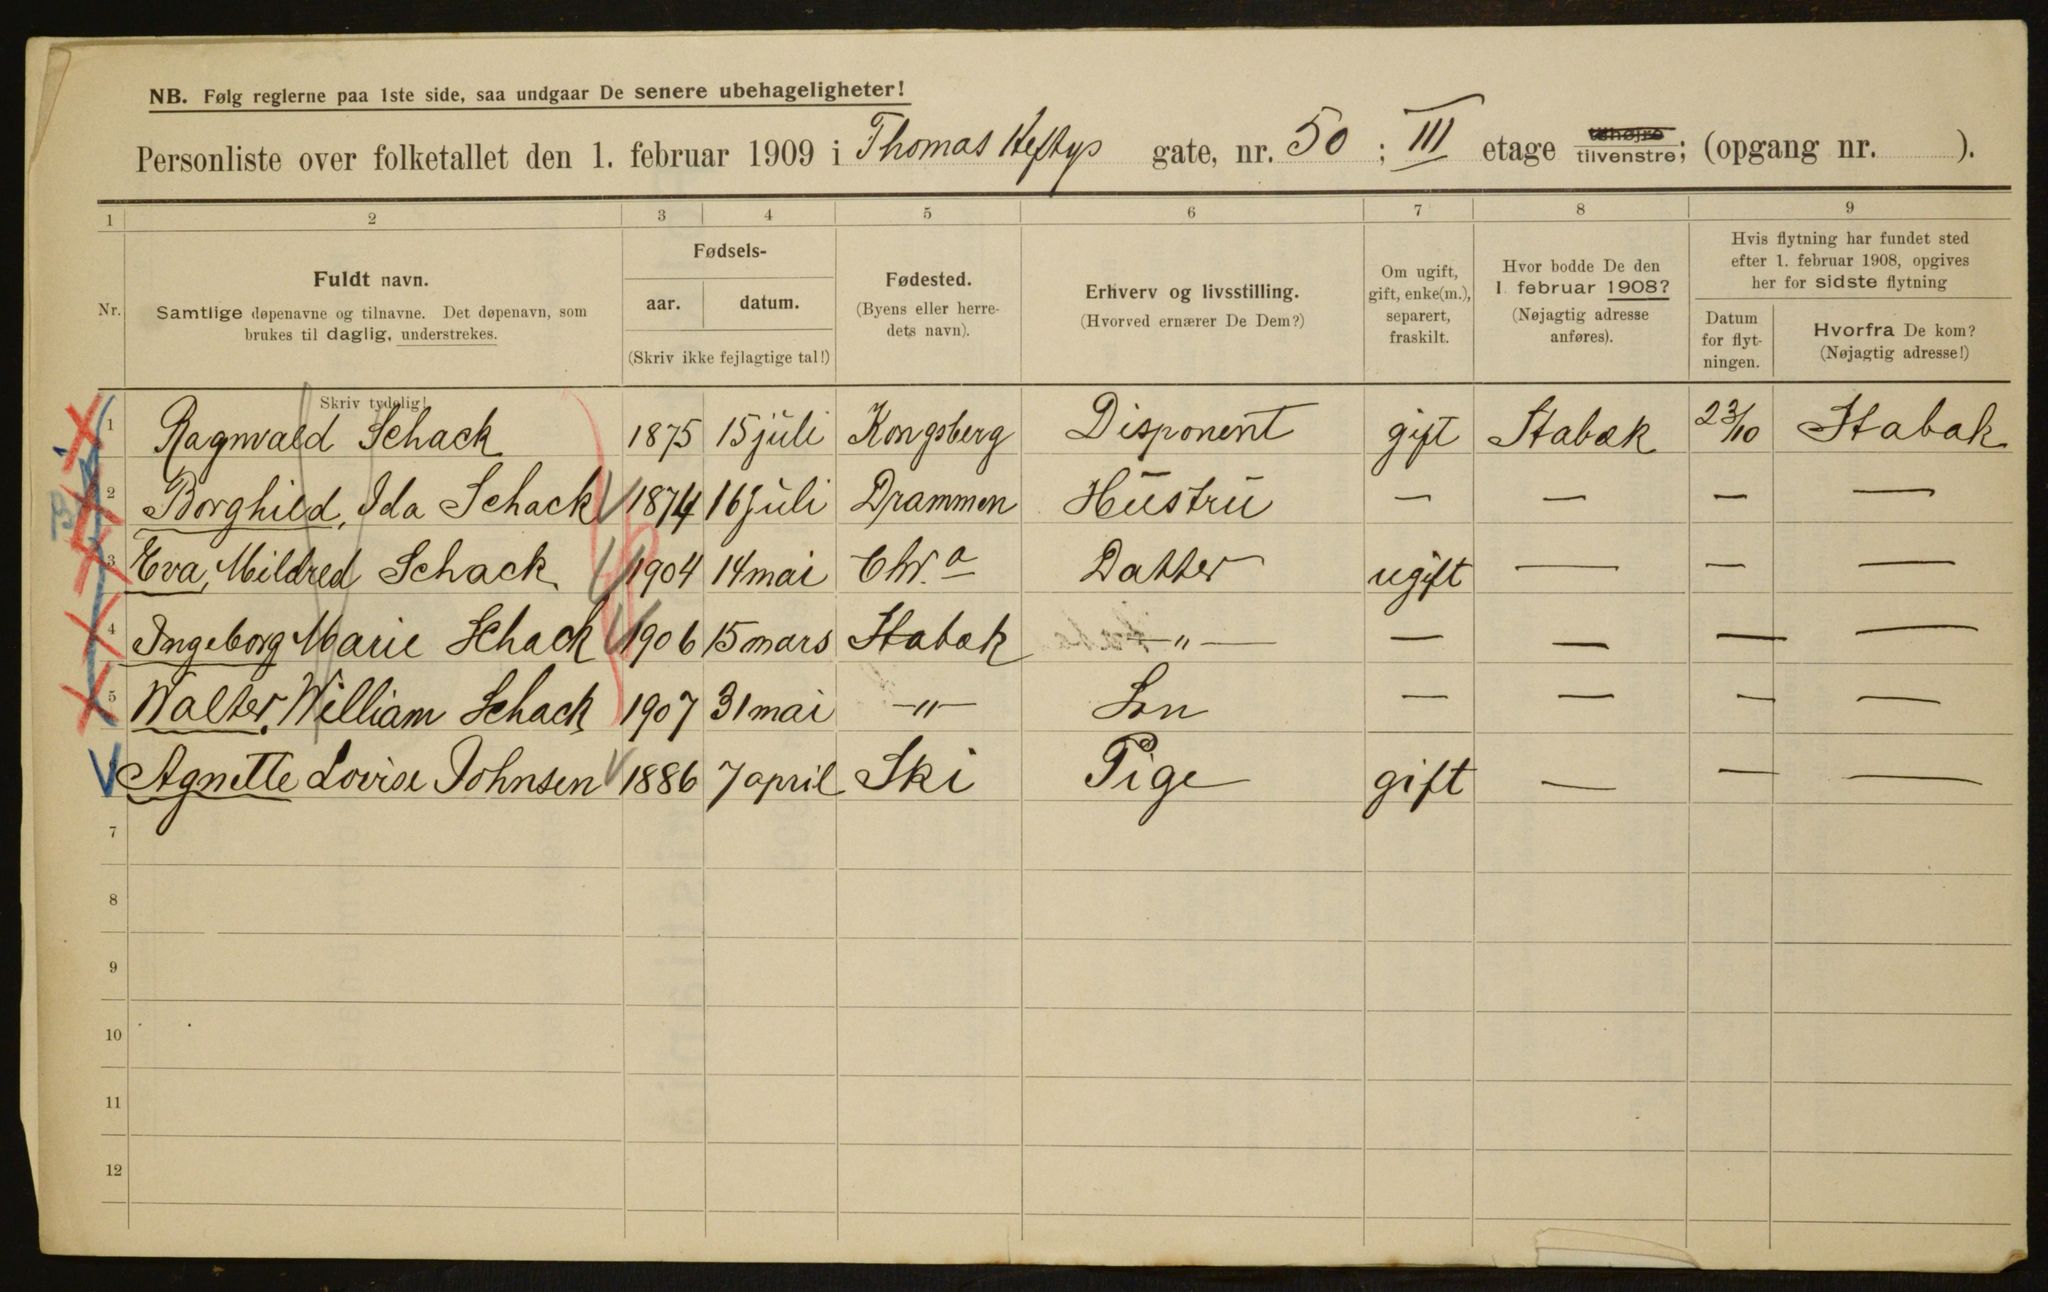 NB. Følg reglerne paa 1ste side, saa undgaar De senere ubehageligheter!
Personliste over folketallet den 1. februar 1909 i Thomas Heftys gate, nr. 50 ; III etage tilhøjre tilvenstre; (opgang nr. ).
1 2 3 4 5 6 7 8 9
Nr.
Fuldt navn.
Samtlige døpenavne og tilnavne. Det døpenavn, som
brukes til daglig, understrekes.
Fødsels-
aar. datum.
(Skriv ikke fejlagtige tal!)
Fødested.
(Byens eller herre-
dets navn).
Erhverv og livsstilling.
(Hvorved ernærer De Dem?)
Om ugift,
gift, enke(m.),
separert,
fraskilt.
Hvor bodde De den
1. februar 1908?
(Nøjagtig adresse
anføres).
Hvis flytning har fundet sted
efter 1. februar 1908, opgives
her for sidste flytning
Datum
for flyt-
ningen.
Hvorfra De kom?
(Nøjagtig adresse!)
Skriv tydelig!
1 Ragnvald Schack 1875 15 juli Kongsberg Disponent gift Stabæk 23/10 Stabæk
2 Borghild, Ida Schack 1874 16 juli Drammen Hustru — — — —
3 Eva, Mildred Schack 1904 14 mai Chr.a Datter ugift — — —
4 Ingeborg Marie Schack 1906 15 mars Stabæk —„— — — — —
5 Walter, William Schack 1907 31 mai —„— Søn — — — —
Agnette Lovise Johnsen 1886 7 april Ski Pige gift — — —
7
8
9
10
11
12